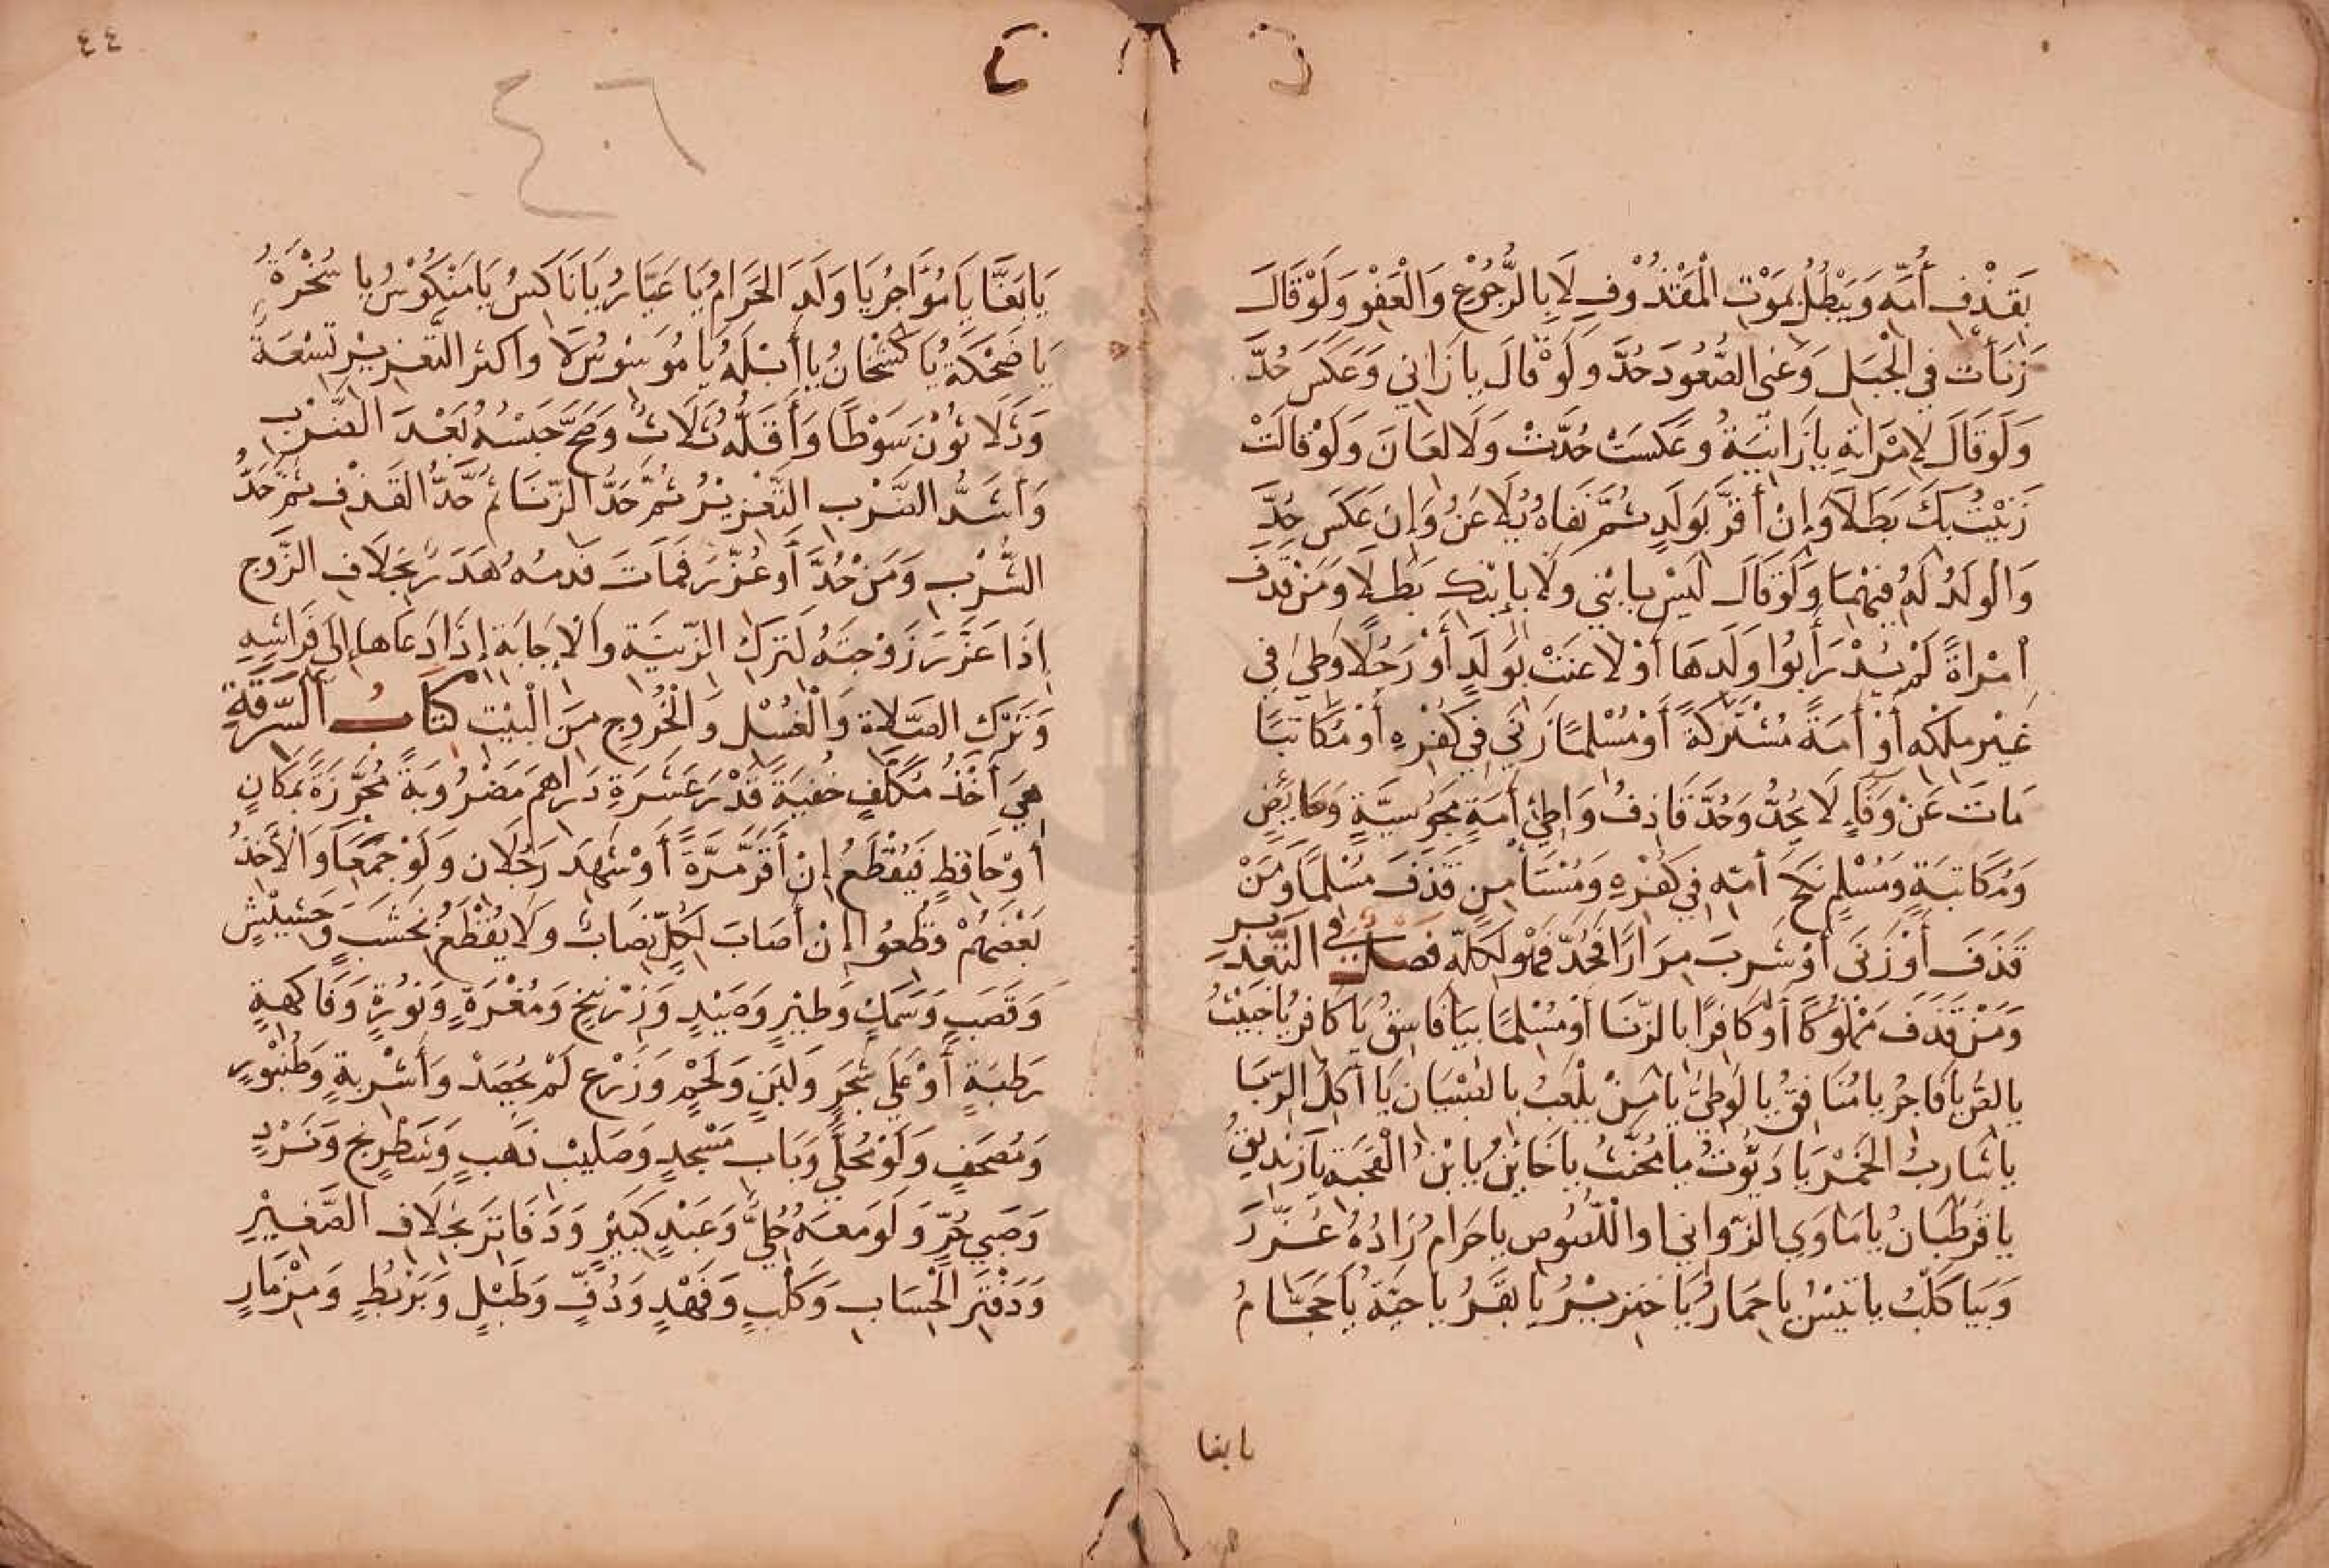 بِقَذْفِ أُمِّهِ وَيَبْطُلُ بِمَوْتِ الْمَقْذُوْفِ لَا بِالرُّجُوْعِ وَالْعَفْوِ وَلَوْ قَالَ
زَنَأْتَ فِي الْجَبَلِ وَعَنَى الصُّعُودَ حُدَّ وَلَوْ قَالَ يَا زَانِي وَعَكَسَ حُدَّا
وَلَوْ قَالَ لِامْرَأَتِهِ يَا زَانِيَةُ وَعَكَسَتْ حُدَّتْ وَلَا لِعَانَ وَلَوْ قَالَتْ
زَنَيْتُ بِكَ بَطَلَا وَإِنْ أَقَرَّ بِوَلَدٍ ثُمَّ نَفَاهُ يُلَاعَنُ وَإِنْ عَكَسَ حُدَّ
وَالْوَلَدُ لَهُ فِيْهِمَا وَلَوْ قَالَ لَيْسَ بِابْنِي وَلَا بِابْنِكِ بَطَلَا وَمَنْ قَذَفَ
امْرَأَةً لَمْ يُدْرَ أَبُوا وَلَدِهَا أَوْ لَاعَنَتْ بِوَلَدٍ أَوْ رَجُلًا وَطِئَ فِي
غَيْرِ مِلْكِهِ أَوْ أَمَةً مُشْتَرَكَةً أَوْ مُسْلِمًا زَنَى فِي كُفْرِهِ أَوْ مُكَاتَبًا
مَاتَ عَنْ وَفَاءٍ لَا يُحَدُّ وَحُدَّ قَاذِفُ وَاطِئِ أَمَةٍ مَجُوْسِيَّةٍ وَحَايِضٍ
وَمُكَاتَبَةٍ وَمُسْلِمٍ نَكَحَ أُمَّهُ فِي كُفْرِهِ وَمُسْتَأْمِنٍ قَذَفَ مُسْلِمًا وَمَنْ
قَذَفَ أَوْ زَنَى أَوْ شَرِبَ مِرَارًا فَحُدَّ فَهُوَ لِكُلِّهِ فَصْلٌ فِي التَّعْزِيرِ
وَمَنْ قَذَفَ مَمْلُوْكًا أَوْ كَافِرًا بِالزِّنَا أَوْ مُسْلِمًا بِيَا فَاسِقُ يَا كَافِرُ يَا خَبِيْثُ
يَا لِصُّ يَا فَاجِرُ يَا مُنَافِقُ يَا لُوْطِيُّ يَا مَنْ يَلْعَبُ بِالصِّبْيَانِ يَا آكِلَ الرِّبَا
يَا شَارِبَ الْخَمْرِ يَا دَيُّوْثُ يَا مُخَنَّثُ يَا خَايِنُ يَا ابْنَ الْقَحْبَةِ يَا زِنْدِيْقُ
يَا قَرْطَبَانُ يَا مَاوَى الزَّوَانِي وَاللُّصُوْصِ يَا حَرَامْ زَادَهْ عُزِّرَ
وَبِيَا كَلْبُ يَا تَيْسُ يَا حِمَارُ يَا خِنْزِيْرُ يَا بَقَرُ يَا حَيَّةُ يَا حَجَّامُ
يا بغا
٤٤
٤٠٦
يَا بَغَّا يَا مُؤَاجِرُ يَا وَلَدَ الْحَرَامِ يَا عَيَّارُ يَا نَاكِسُ يَا مَنْكُوْسُ يَا سُخْرَةُ
يَا ضُحْكَةُ يَا كَشْخَانُ يَا أَبْلَهُ يَا مُوَسْوِسُ لَا وَأَكْثَرُ التَّعْزِيْرِ تِسْعَةٌ
وَثَلَاثُوْنَ سَوْطًا وَأَقَلُّهُ ثَلَاثٌ وَصَحَّ حَبْسُهُ بَعْدَ الضَّرْبِ
وَأَشَدُّ الضَّرْبِ التَّعْزِيْرُ ثُمَّ حَدُّ الزِّنَا ثُمَّ حَدُّ الْقَذْفِ ثُمَّ حَدُّ
الشُّرْبِ وَمَنْ حُدَّ أَوْ عُزِّرَ فَمَاتَ فَدَمُهُ هَدَرٌ بِخِلَافِ الزَّوْجِ
إِذَا عَزَّرَ زَوْجَتَهُ لِتَرْكِ الزِّيْنَةِ وَالْإِجَابَةِ إِذَا دَعَاهَا إِلَى فِرَاشِهِ
وَتَرْكِ الصَّلَاةِ وَالْغُسْلِ وَالْخُرُوْجِ مِنَ الْبَيْتِ كِتَابُ السَّرِقَةِ
هِيَ أَخْذُ مُكَلَّفٍ خُفْيَةً قَدْرَ عَشَرَةِ دَرَاهِمَ مَضْرُوبَةً مُحَرَّزَةً بِمَكَانٍ
أَوْ حَافِظٍ فَيُقْطَعُ إِنْ أَقَرَّ مَرَّةً أَوْ شَهِدَ رَجُلَانِ وَلَوْ جَمْعًا وَالْأَخْذُ
بَعْضُهُمْ قُطِعُوا إِنْ أَصَابَ لِكُلٍّ نِصَابٌ وَلَا يُقْطَعُ بِخَشَبٍ وَحَشِيْشٍ
وَقَصَبٍ وَسَمَكٍ وَطَيْرٍ وَصَيْدٍ وَزَرْنِيْخٍ وَمُغْرَةٍ وَنُوْرَةٍ وَفَاكِهَةٍ
رَطْبَةٍ أَوْ عَلَى شَجَرٍ وَلَبَنٍ وَلَحْمٍ وَزَرْعٍ لَمْ يُحْصَدْ وَأَشْرِبَةٍ وَطُنْبُوْرٍ
وَمُصْحَفٍ وَلَوْ مُحَلًّى وَبَابِ مَسْجِدٍ وَصَلِيْبِ ذَهَبٍ وَشَطْرَنْجٍ وَنَرْدٍ
وَصَبِيٍّ حُرٍّ وَلَوْ مَعَهُ حُلِيٌّ وَعَبْدٍ كَبِيْرٍ وَدَفَاتِرَ بِخِلَافِ الصَّغِيْرِ
وَدَفْتَرِ الْحِسَابِ وَكَلْبٍ وَفَهْدٍ وَدُفٍّ وَطَبْلٍ وَبَرْبَطٍ وَمِزْمَارٍ